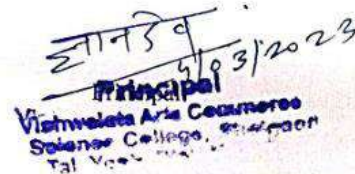 ज्ञानदेव
4/03/2023
Principal
Vishwalata Arts Commerce
Science College,
Tal